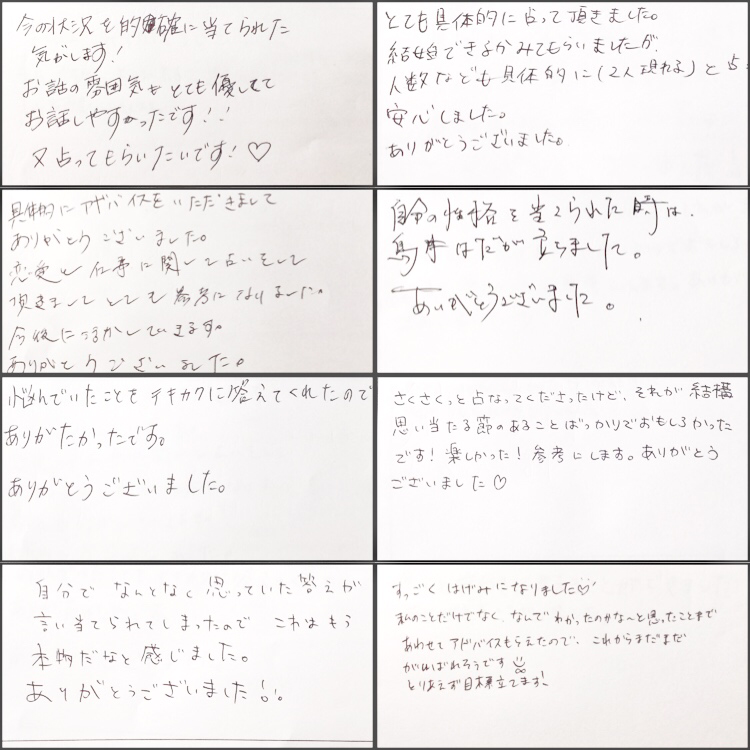 今の状況を的確に当てられた
気がします!
お話の雰囲気もとても優しくて
お話しやすかったです!!
又占ってもらいたいです!♡
とても具体的に占って頂きました。
結婚できるかみてもらいましたが、
人数なども具体的に(2人現れる)と占
安心しました。
ありがとうございました。
具体的にアドバイスをいただきまして
ありがとうございました。
恋愛と仕事に関して占いをして
頂きましてとても参考になりました。
今後に活かしていきます。
ありがとうございました。
自分の性格を当てられた時は、
鳥肌が立ちました。
ありがとうございました。
悩んでいたことをテキカクに答えてくれたので
ありがたかったです。
ありがとうございました。
さくさくっと占なってくださったけど、それが結構
思い当たる節のあることばっかりでおもしろかった
です!楽しかった!参考にします。ありがとう
ございました♡
自分でなんとなく思っていた答えが
言い当てられてしまったので これはもう
本物だなと感じました。
ありがとうございました!!。
すっごくはげみになりました♡
私のことだけでなく、なんでわかったのかな〜と思ったことまで
あわせてアドバイスもらえたので、これからまだまだ
がんばれそうです
とりあえず目標立てます!